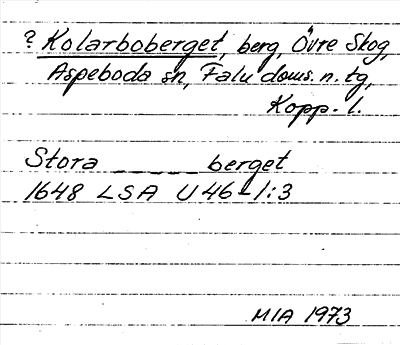 ? Kolarboberget, berg, Övre Skog,
Aspeboda sn, Falu doms. n. tg,
Kopp. l.
Stora _ _ _ _ _ berget
1648 LSA U46-1:3
MIA 1973